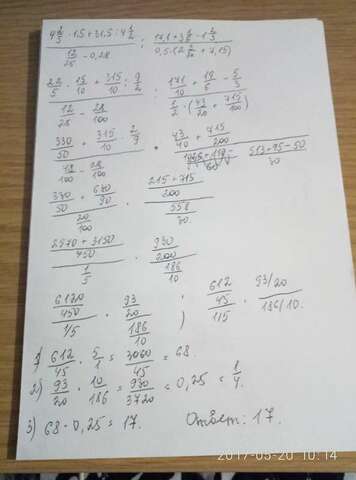 4 2/5 · 1,5 + 31,5 : 4 1/2 / 12/25 - 0,28 : 17,1 + 3 4/5 - 1 2/3 / 0,5 · (2 3/20 + 7,15)
22/5 · 15/10 + 315/10 : 9/2 / 12/25 - 28/100 : 171/10 + 19/5 - 5/3 / 1/2 · (43/20 + 715/100)
330/50 + 315/10 · 2/9 / 48/100 - 28/100 · 43/40 + 715/200 / 513+95-50 / 30
330/50 + 630/90 / 20/100 · 215+715 / 200 / 558/30
2970 + 3150 / 450 / 1/5 · 930/200 / 186/10
6120/450 / 1/5 · 93/20 / 186/10 ; 612/45 / 1/5 · 93/20 / 186/10.
1) 612/45 · 5/1 = 3060/45 = 68.
2) 93/20 · 10/186 = 930/3720 = 0,25 = 1/4.
3) 68 · 0,25 = 17. Ответ: 17.
2017-05-20 10:14